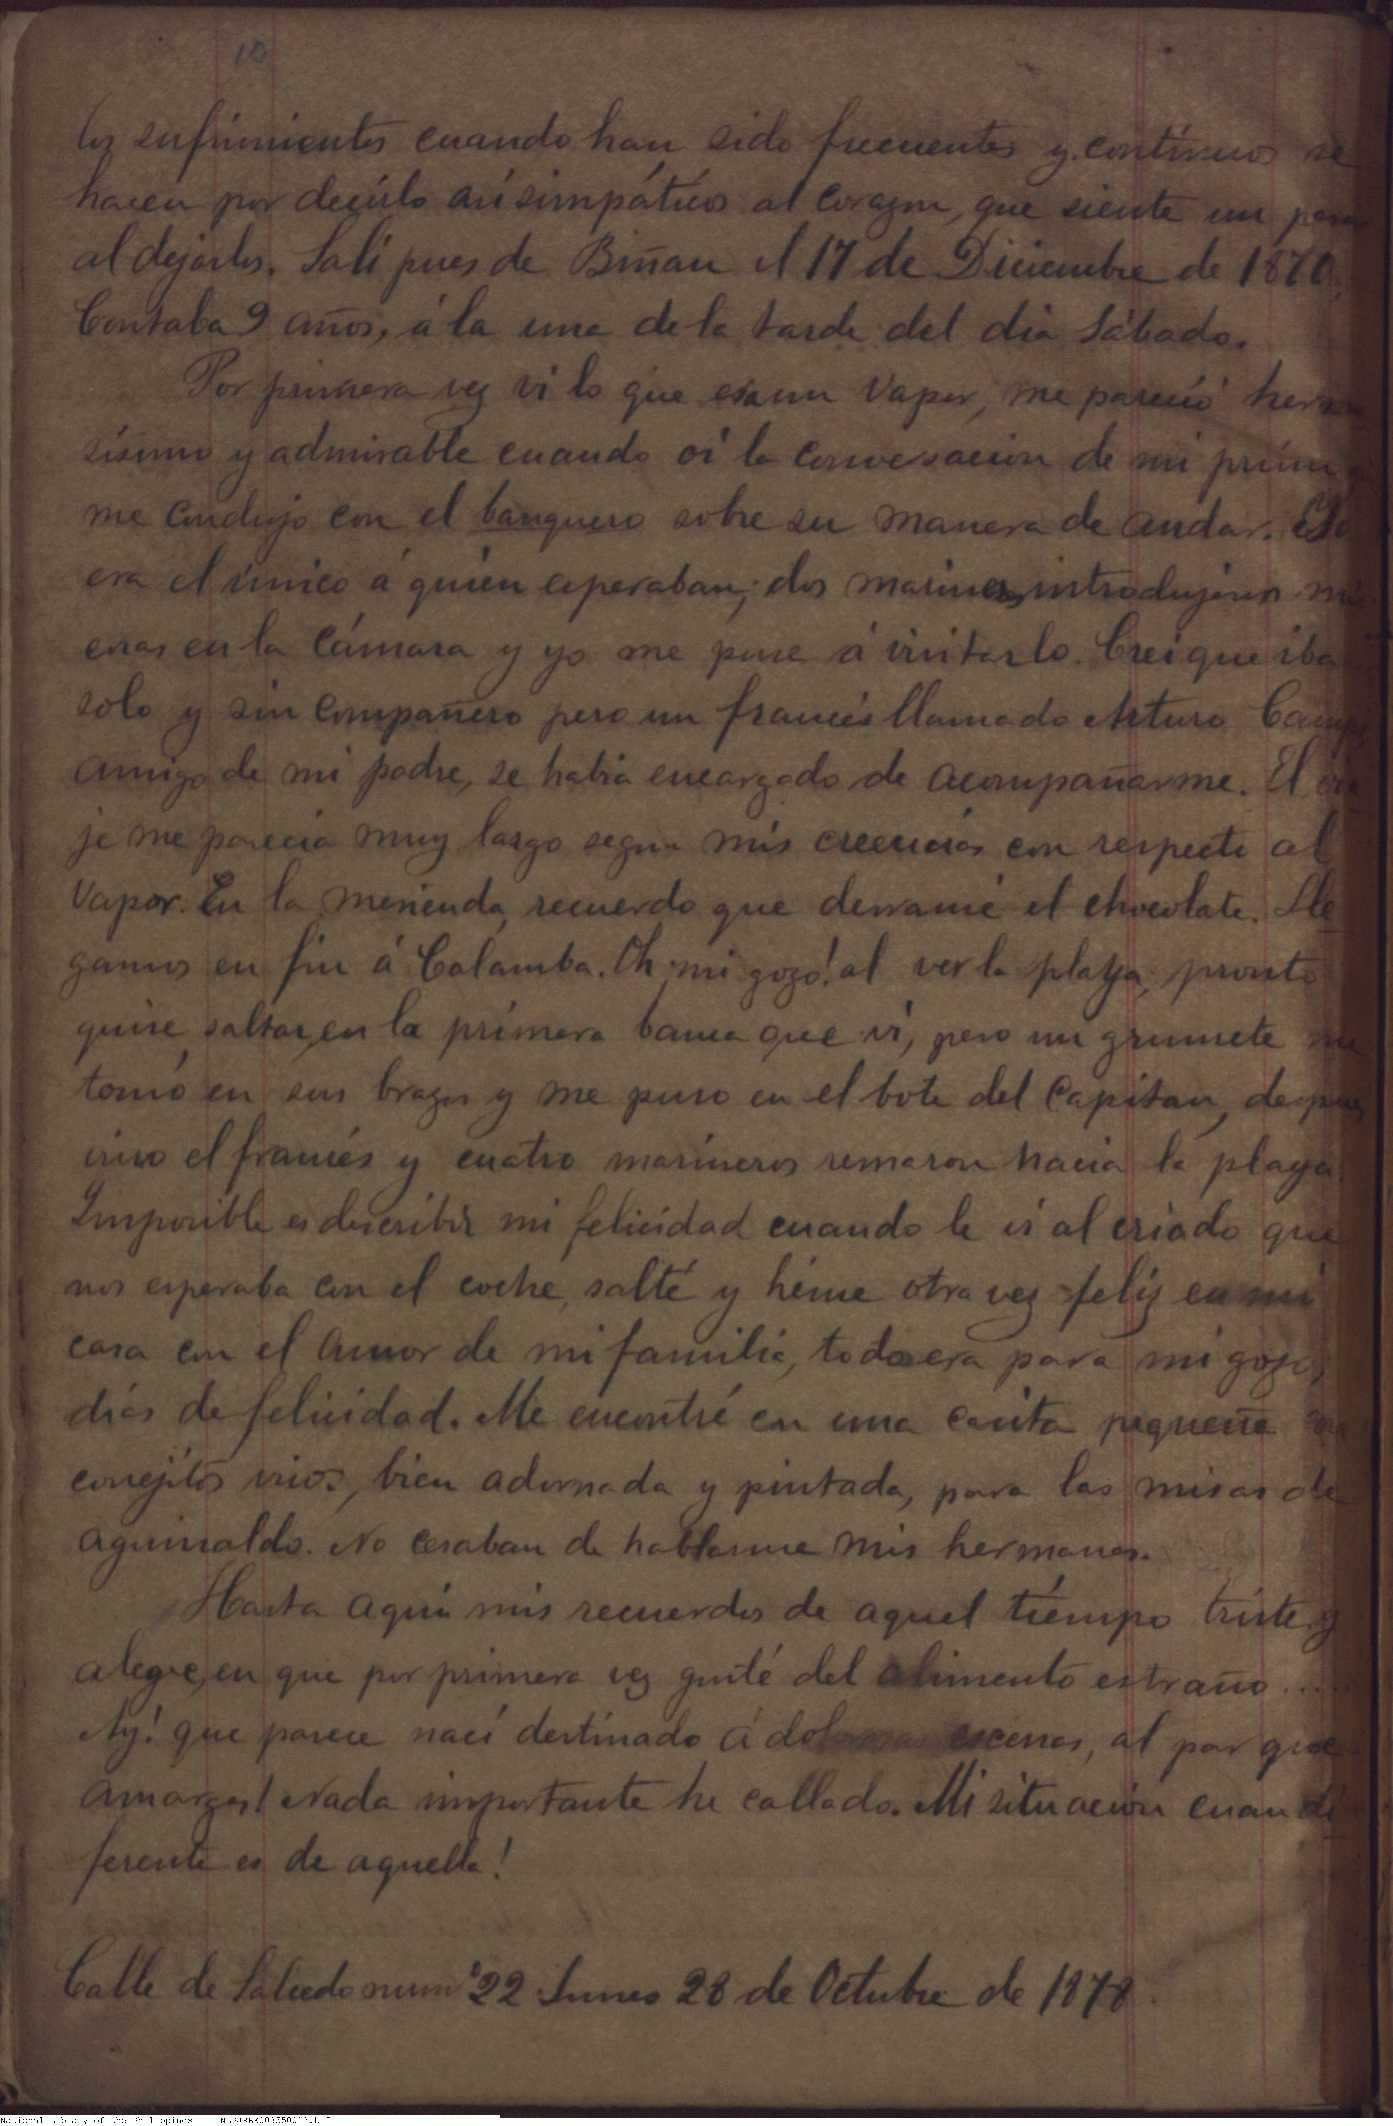 10
los sufrimientos cuando han sido frecuentes y contínuos se
hacen por decirlo así simpáticos al corazon, que siente un pesar
al dejarlos. Salí pues de Biñan el 17 de Diciembre de 1870.
Contaba 9 años, á la una de la tarde del dia Sábado.
Por primera vez vi lo que era un Vapor, me pareció hermo
sísimo y admirable cuando oí la conversacion de mi primo
me condujo con el banquero sobre su manera de andar.
era el único á quien esperaban; dos marineros introdujeron mis
cosas en la Cámara y yo me puse á visitarlo. Creí que iba
solo y sin compañero pero un francés llamado Arturo Camps,
amigo de mi padre, se habia encargado de acompañarme. El via
je me parecia muy largo segun mis creencias con respecto al
Vapor. En la merienda, recuerdo que derramé el chocolate. Lle
gamos en fin á Calamba. Oh mi gozo! al ver la playa; pronto
quise saltar, en la primera banca que ví, pero un grumete me
tomó en sus brazos y me puso en el bote del Capitan, despues
vino el francés y cuatro marineros remaron hacia la playa.
Imposible es describir mi felicidad cuando le ví al criado que
nos esperaba con el coche, salté y héme otra vez feliz en mi
casa con el amor de mi familia, todo era para mi gozo,
dias de felicidad. Me encontré con una casita pequeña con
conejitos vivos, bien adornada y pintada, para las misas de
aguinaldo. No cesaban de hablarme mis hermanos.
Hasta aqui mis recuerdos de aquel tiempo triste y
alegre, en que por primera vez gusté del alimento estraño.....
Ay! que parece nací destinado á dolorosas escenas, al par que
amargas! Nada importante he callado. Mi situacion cuan di
ferente es de aquella!
Calle de Salcedo num° 22 Lunes 28 de Octubre de 1878.
National Library of the Philippines